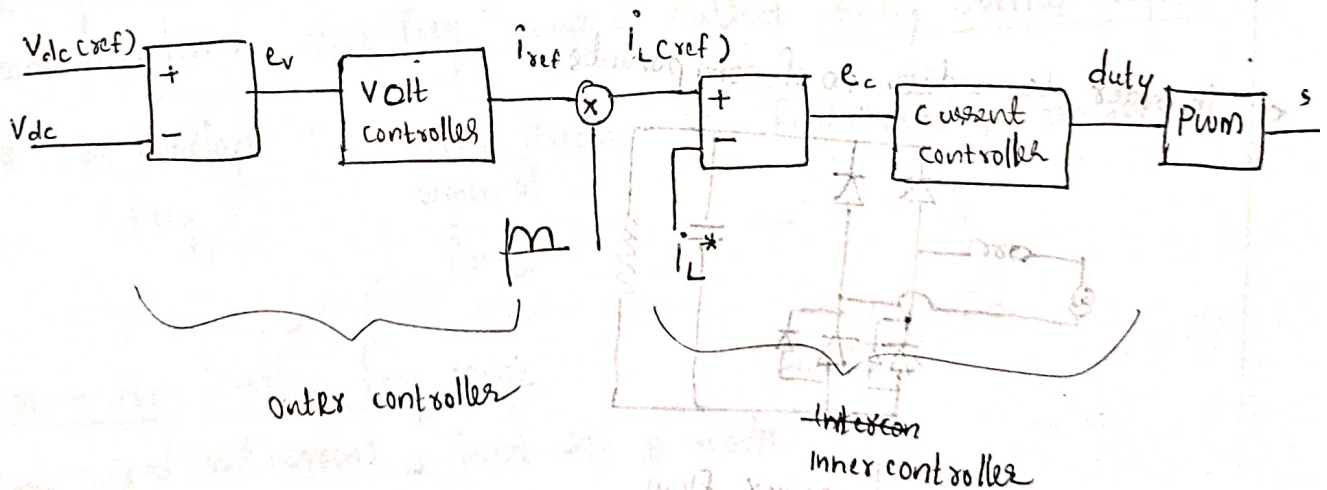 Vdc(ref)
+
ev
Volt
controller
iref
x
iL(ref)
+
ec
Current
controller
duty
PWM
s
Vdc
-
-
iL*
Outer controller
Intercon
Inner controller